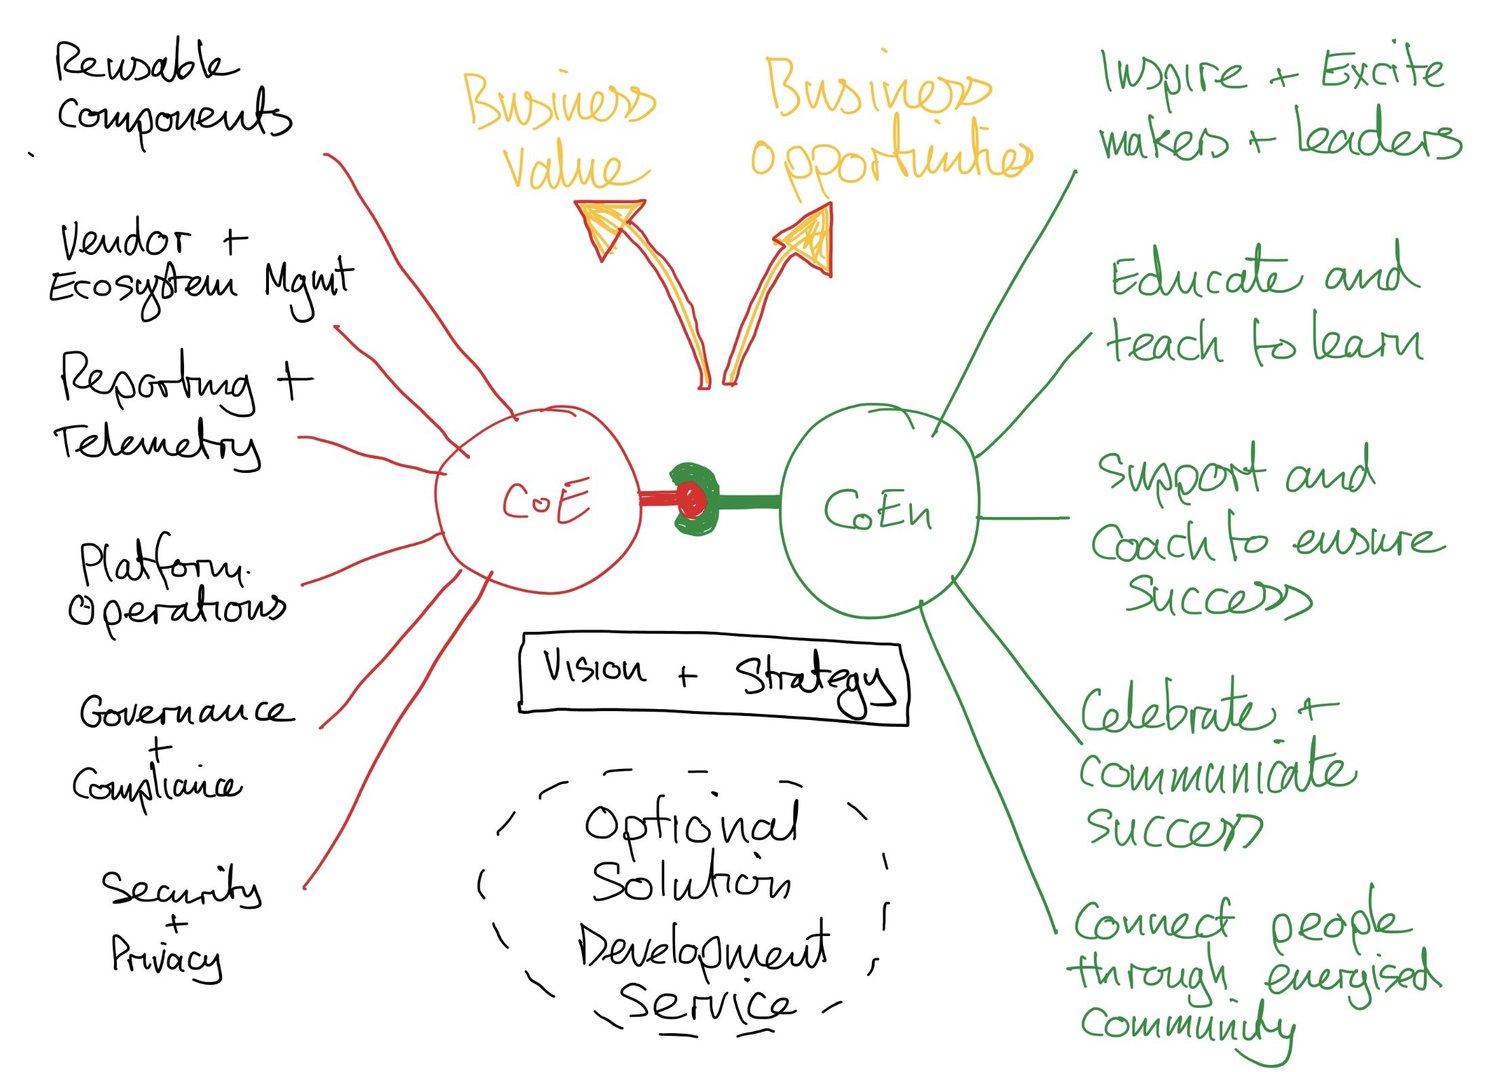 Reusable
Components
Vendor +
Ecosystem Mgmt
Reporting +
Telemetry
Platform
Operations
Governance
+
Compliance
Security
+
Privacy
Business
Value
Business
Opportunities
CoE
CoEn
Vision + Strategy
Optional
Solution
Development
Service
Inspire + Excite
makers + leaders
Educate and
teach to learn
Support and
Coach to ensure
Success
Celebrate +
communicate
success
Connect people
through energised
community